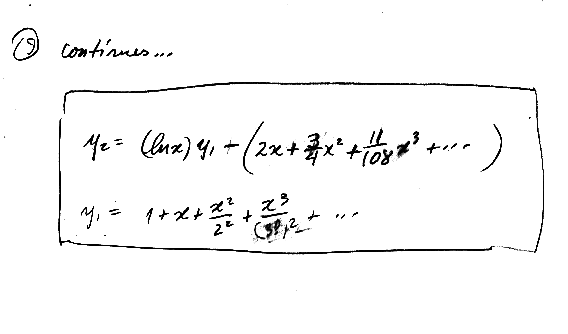 (19) continues...
y₂ = (ln x) y₁ - (2x + 3/4 x² + 11/108 x³ + ...)
y₁ = 1 + x + x²/2² + x³/(3!)² + ...